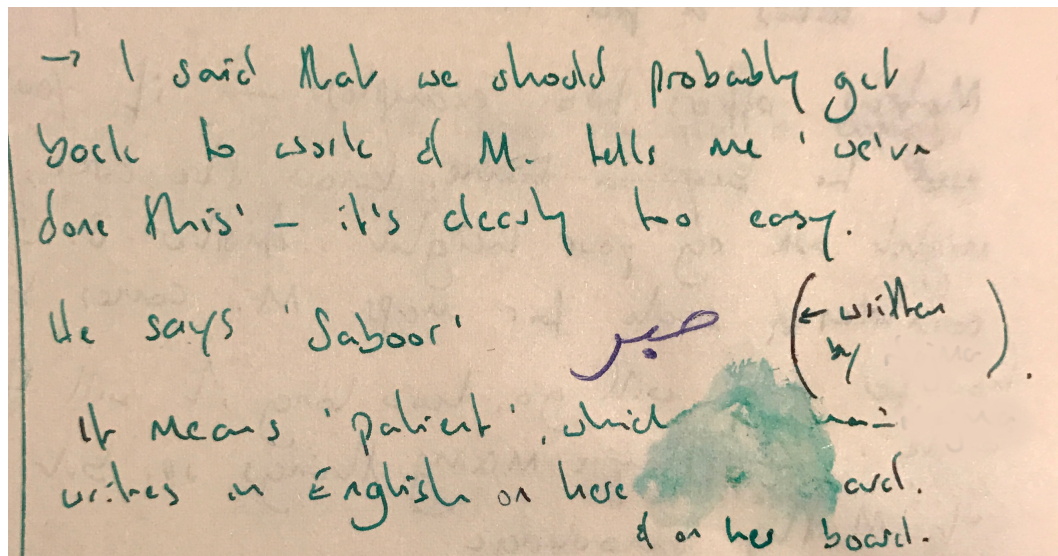 → I said that we should probably get
back to work & M. tells me 'we've
done this' – it's clearly too easy.
He says 'Saboor' صبر (← written
by ).
It means 'patient', which
writes in English on here
& on her board.